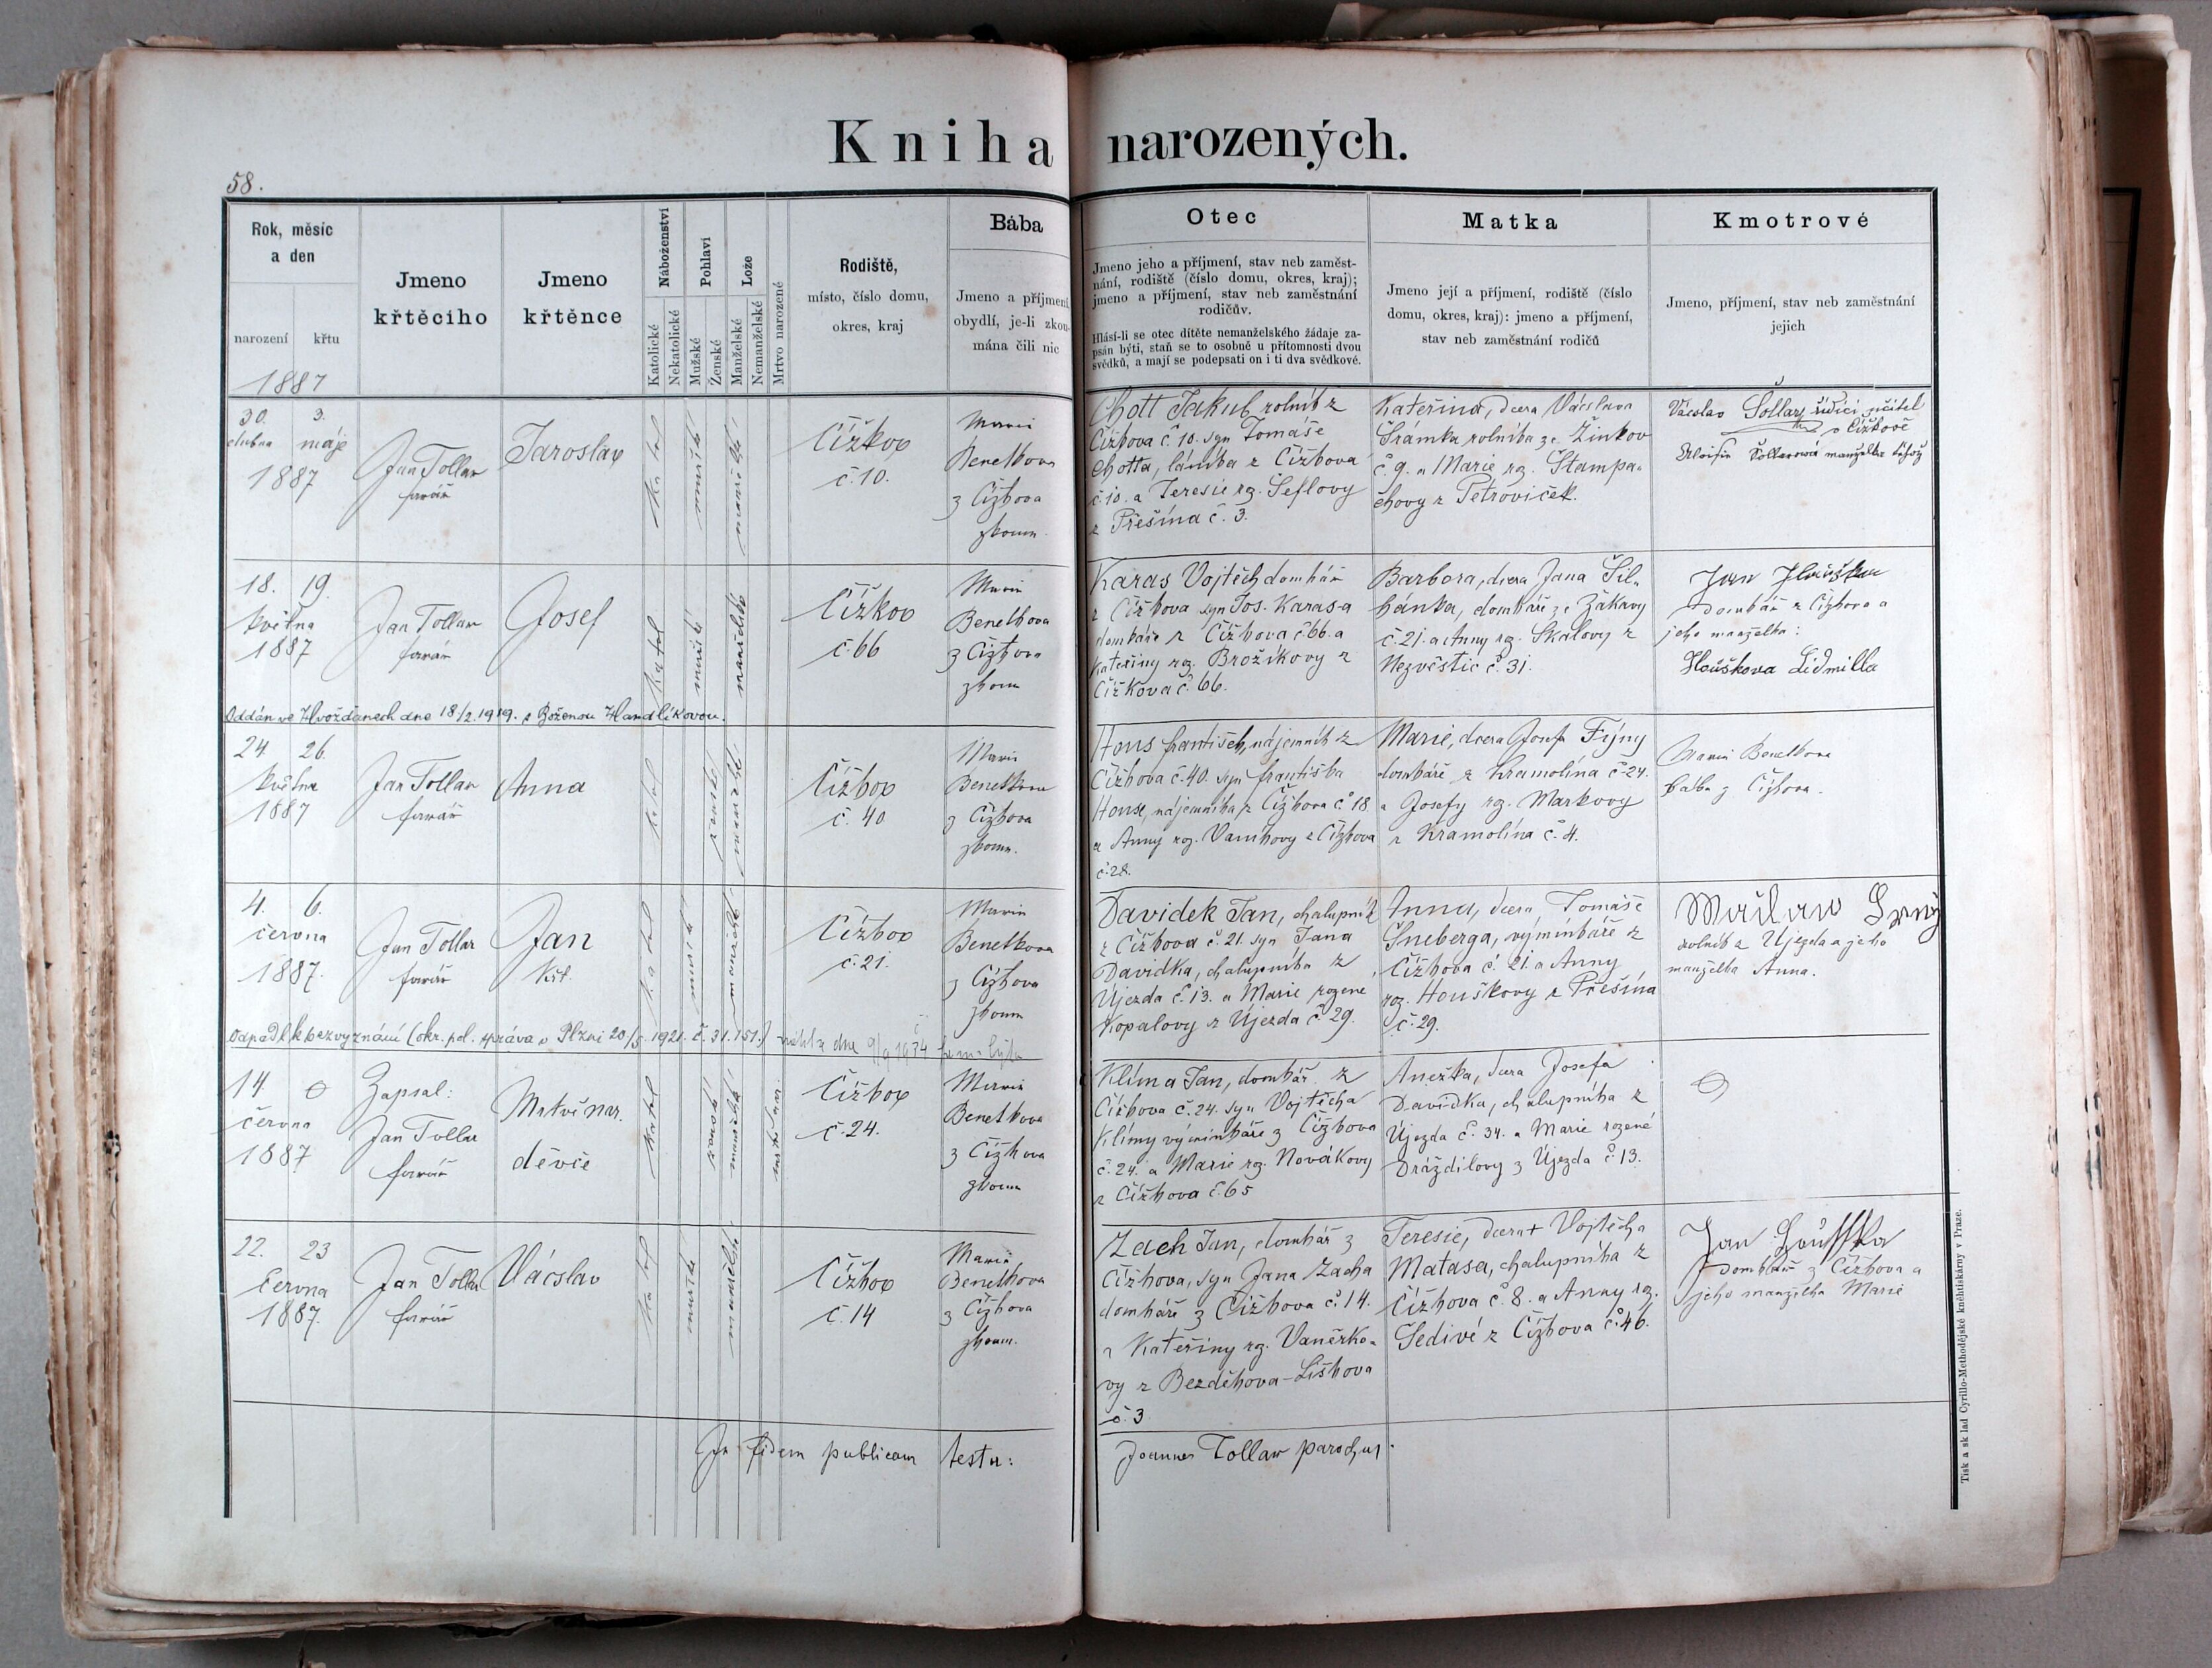 Kniha narozených.
58.
Rok, měsíc
a den
narození křtu
1887
Jmeno
křtěcího
Jmeno
křtěnce
Náboženství
Katolické
Nekatolické
Pohlaví
Mužské
Ženské
Lože
Manželské
Nemanželské
Mrtvo narozené
Rodiště,
místo, číslo domu,
okres, kraj
Bába
Jmeno a příjmení
obydlí, je-li zkou-
mána čili nic
Otec
Jmeno jeho a příjmení, stav neb zaměst-
nání, rodiště (číslo domu, okres, kraj);
jmeno a příjmení, stav neb zaměstnání
rodičův.
Hlásí-li se otec dítěte nemanželského žádaje za-
psán býti, staň se to osobně u přítomnosti dvou
svědků, a mají se podepsati on i ti dva svědkové.
Matka
Jmeno její a příjmení, rodiště (číslo
domu, okres, kraj): jmeno a příjmení,
stav neb zaměstnání rodičů
Kmotrové
Jmeno, příjmení, stav neb zaměstnání
jejich
30. 3.
dubna máje
1887
Jan Tollar
farář
Jaroslav
katol
mužské
manželské
Čížkov
č. 10.
Marie
Benetkova
z Čížkova
zkoum
Chott Jakub rolník z
Čížkova č. 10. syn Tomáše
Chotta, láníka z Čížkova
č. 10. a Teresie rz. Šeflovy
z Přešína č. 3.
Kateřina, dcera Václava
Šrámka rolníka ze Žinkov
č. 9. a Marie rz. Štampa-
chovy z Petroviček.
Václav Šollar, řídící učitel
v Čížkově
Aloisie Šollarová manželka téhož
18. 19.
května
1887
Jan Tollar
farář
Josef
katol
mužské
manželské
Čížkov
č. 66
Marie
Benetkova
z Čížkova
zkoum
Karas Vojtěch domkář
z Čížkova syn Jos. Karasa
domkáře z Čížkova č. 66. a
Kateřiny rz. Brožíkovy z
Čížkova č. 66.
Barbora, dcera Jana Šil-
hánka, domkáře ze Žákavy
č. 21. a Anny rz. Skálovy z
Nezvěstic č. 31.
Jan
Domkář z Čížkova a
jeho manželka:
Houškova Lidmilla
Oddán ve Hvožďanech dne 18/2. 1919. s Boženou Handlíkovou.
24. 26.
května
1887
Jan Tollar
farář
Anna
katol
ženské
manželské
Čížkov
č. 40
Marie
Benetkova
z Čížkova
zkoum.
Hous František, nájemník z
Čížkova č. 40. syn Františka
House, nájemníka z Čížkova č. 18
a Anny rz. Vaníkovy z Čížkova
č. 28.
Marie, dcera Josefa Frýny
domkáře z Kramolína č. 24.
a Josefy rz. Markovy
z Kramolína č. 4.
Marie Benetkova
bába z Čížkova.
4. 6.
června
1887.
Jan Tollar
farář
Jan
Křt.
katol
mužské
manželské
Čížkov
č. 21.
Marie
Benetkova
z Čížkova
zkoum
Davídek Jan, chalupník
z Čížkova č. 21. syn Jana
Davídka, chalupníka z
Újezda č. 13. a Marie rozené
Kopalovy z Újezda č. 29.
Anna, dcera Tomáše
Šneberga, výminkáře z
Čížkova č. 21. a Anny
roz. Houškovy z Přešína
č. 29.
rolník z Újezda a jeho
manželka Anna.
Odpadl k bezvyznání (okr. pol. správa v Plzni 20/5. 1921. č. 31.151.)
14 0
června
1887
Zapsal:
Jan Tollar
farář
Mrtvě nar.
děvče
katol
ženské
manželské
Čížkov
č. 24.
Marie
Benetkova
z Čížkova
zkoum
Klíma Jan, domkář z
Čížkova č. 24. syn Vojtěcha
Klímy výminkáře z Čížkova
č. 24. a Marie rz. Novákovy
z Čížkova č. 65
Anežka, dcera Josefa
Davídka, chalupníka z
Újezda č. 34. a Marie rozené
Drážďilovy z Újezda č. 13.
22. 23
června
1887.
Jan Tollar
farář
Václav
katol
mužské
manželské
Čížkov
č. 14
Marie
Benetkova
z Čížkova
zkoum.
Zach Jan, domkář z
Čížkova, syn Jana Zacha
domkáře z Čížkova č. 14.
a Kateřiny rz. Vaněčko-
vy z Bezděkova-Liškova
č. 3.
Teresie, dcera + Vojtěcha
Matasa, chalupníka z
Čížkova č. 8. a Anny rz.
Šedivé z Čížkova č. 46.
Jan
Domkář z Čížkova a
jeho manželka Marie
In fidem publicam testor:
Joannes Tollar parochus.
Tisk a sklad Cyrillo-Methodějské knihtiskárny v Praze.